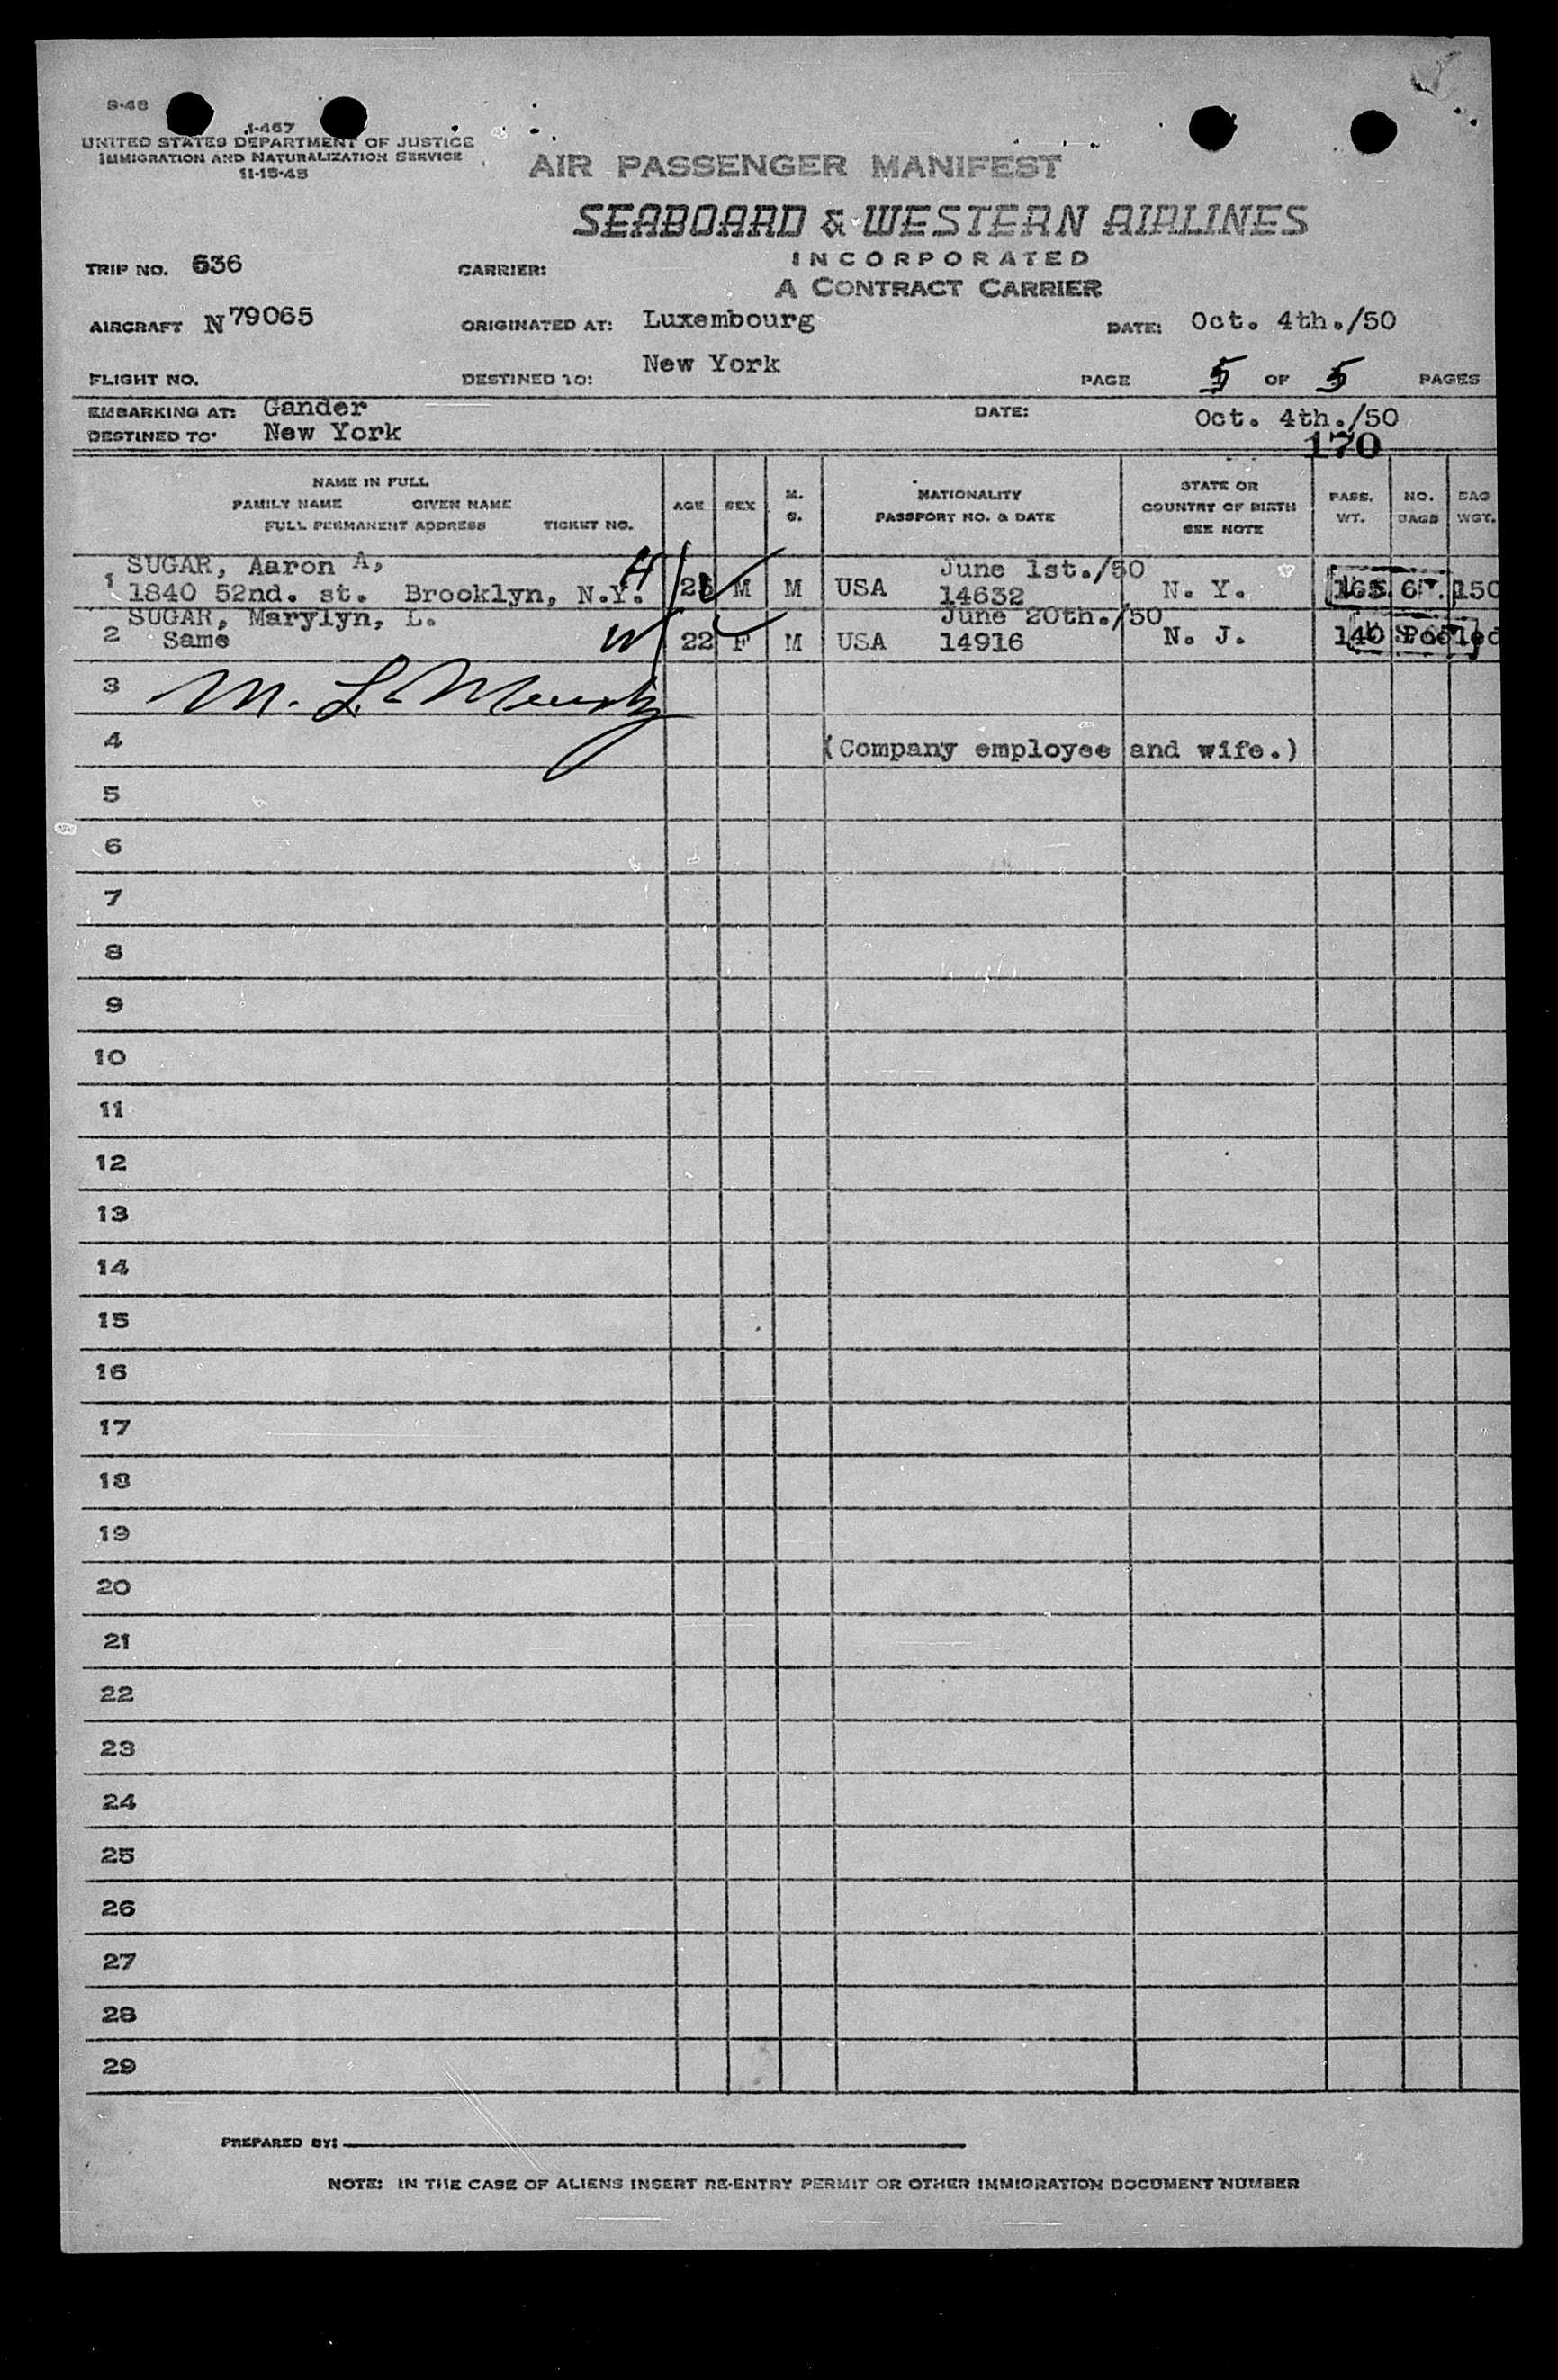 9-48
I-467
UNITED STATES DEPARTMENT OF JUSTICE
IMMIGRATION AND NATURALIZATION SERVICE
11-15-45
AIR PASSENGER MANIFEST
SEABOARD & WESTERN AIRLINES
INCORPORATED
A CONTRACT CARRIER
TRIP NO. 636 CARRIER:
AIRCRAFT N 79065 ORIGINATED AT: Luxembourg DATE: Oct. 4th./50
FLIGHT NO. DESTINED TO: New York PAGE 5 OF 5 PAGES
EMBARKING AT: Gander DATE: Oct. 4th./50
DESTINED TO: New York
170
NAME IN FULL
FAMILY NAME GIVEN NAME
FULL PERMANENT ADDRESS TICKET NO.
AGE SEX M. S.
NATIONALITY
PASSPORT NO. & DATE
STATE OR
COUNTRY OF BIRTH
SEE NOTE
PASS. WT. NO. BAGS BAG WGT.
1 SUGAR, Aaron A, June 1st./50
1840 52nd. st. Brooklyn, N.Y. H M M USA 14632 N. Y. 165 150
2 SUGAR, Marylyn, L. June 20th./50
Same W 22 F M USA 14916 N. J. 140 Pooled
3
4 (Company employee and wife.)
5
6
7
8
9
10
11
12
13
14
15
16
17
18
19
20
21
22
23
24
25
26
27
28
29
PREPARED BY:
NOTE: IN THE CASE OF ALIENS INSERT RE-ENTRY PERMIT OR OTHER IMMIGRATION DOCUMENT NUMBER